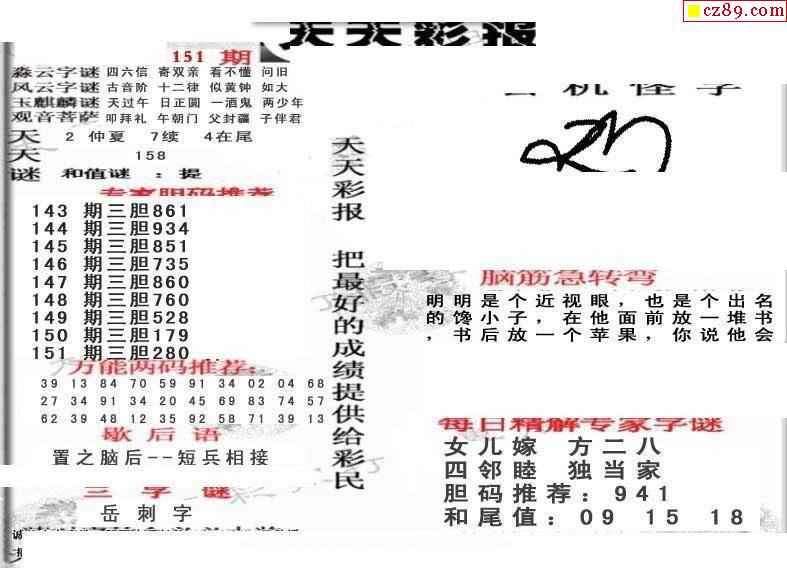 cz89.com
天天彩报
151 期
淼云字谜 四六信 寄双亲 看不懂 问旧
风云字谜 古音阶 十二律 似黄钟 如大
玉麒麟谜 天过午 日正圆 一酒鬼 两少年
观音菩萨 叩拜礼 午朝门 父封疆 子伴君
天 2 仲夏 7续 4在尾
天 158
谜 和值谜 : 提
专家胆码推荐
143 期三胆861
144 期三胆934
145 期三胆851
146 期三胆735
147 期三胆860
148 期三胆760
149 期三胆528
150 期三胆179
151 期三胆280
万能两码推荐:
39 13 84 70 59 91 34 02 04 68
27 34 91 34 20 45 69 83 74 57
62 39 48 12 35 92 58 71 39 13
歇后语
置之脑后--短兵相接
三字谜
岳刺字
天天彩报 把最好的成绩提供给彩民
机怪字
脑筋急转弯
明明是个近视眼，也是个出名
的馋小子，在他面前放一堆书
，书后放一个苹果，你说他会
每日精解专家字谜
女儿嫁 方二八
四邻睦 独当家
胆码推荐: 941
和尾值: 09 15 18